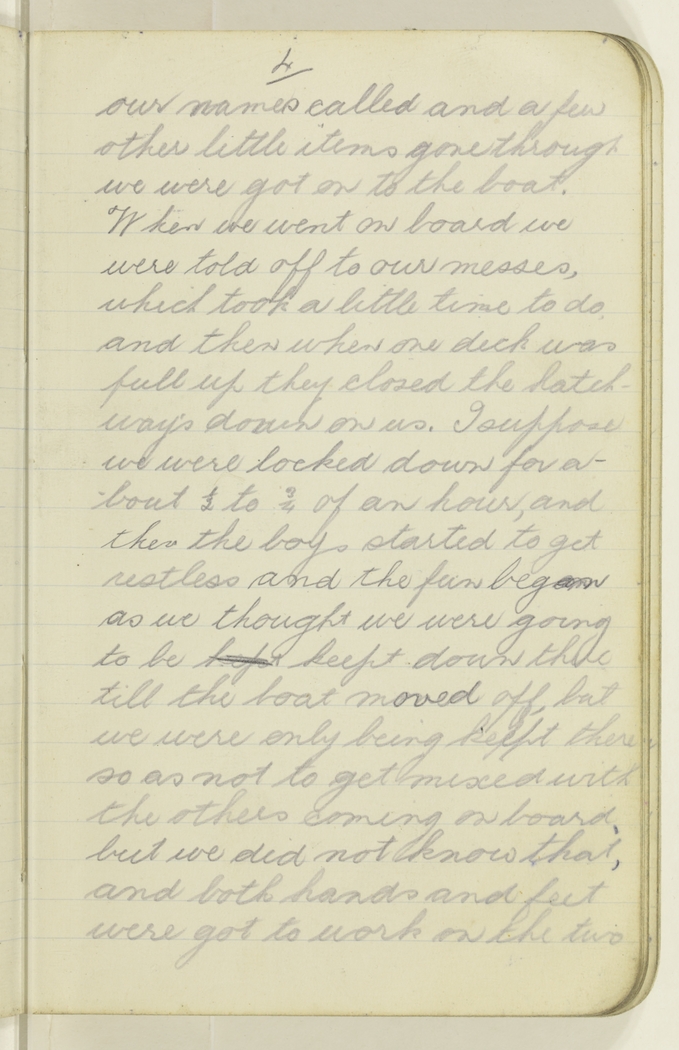 4
our names called and a few
other little items gone through
we were got on to the boat.
When we went on board we
were told off to our messes,
which took a little time to do,
and then when one deck was
full up they closed the hatch-
ways down on us. I suppose
we were locked down for a-
bout ½ to ¾ of an hour, and
then the boys started to get
restless and the fun began
as we thought we were going
to be kept keept down there
till the boat moved off, but
we were only being keept there
so as not to get mixed with
the others coming on board,
but we did not know that,
and both hands and feet
were got to work on the two